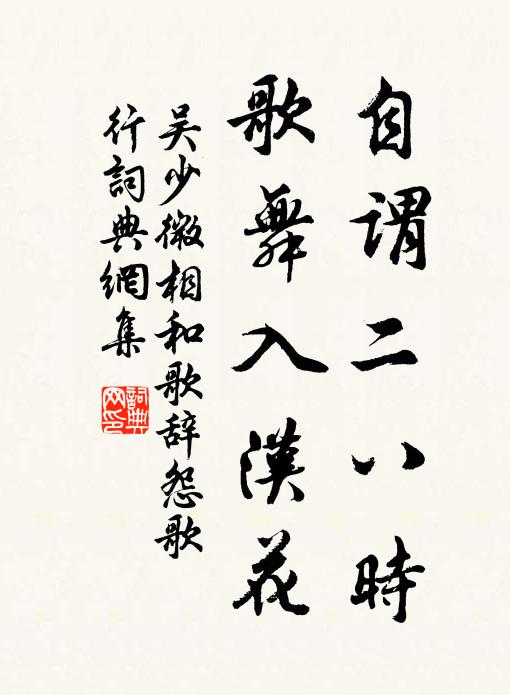 自謂二八時
歌舞入漢花
吴少微相和歌辞怨歌
行詞典網集
詞典
网印